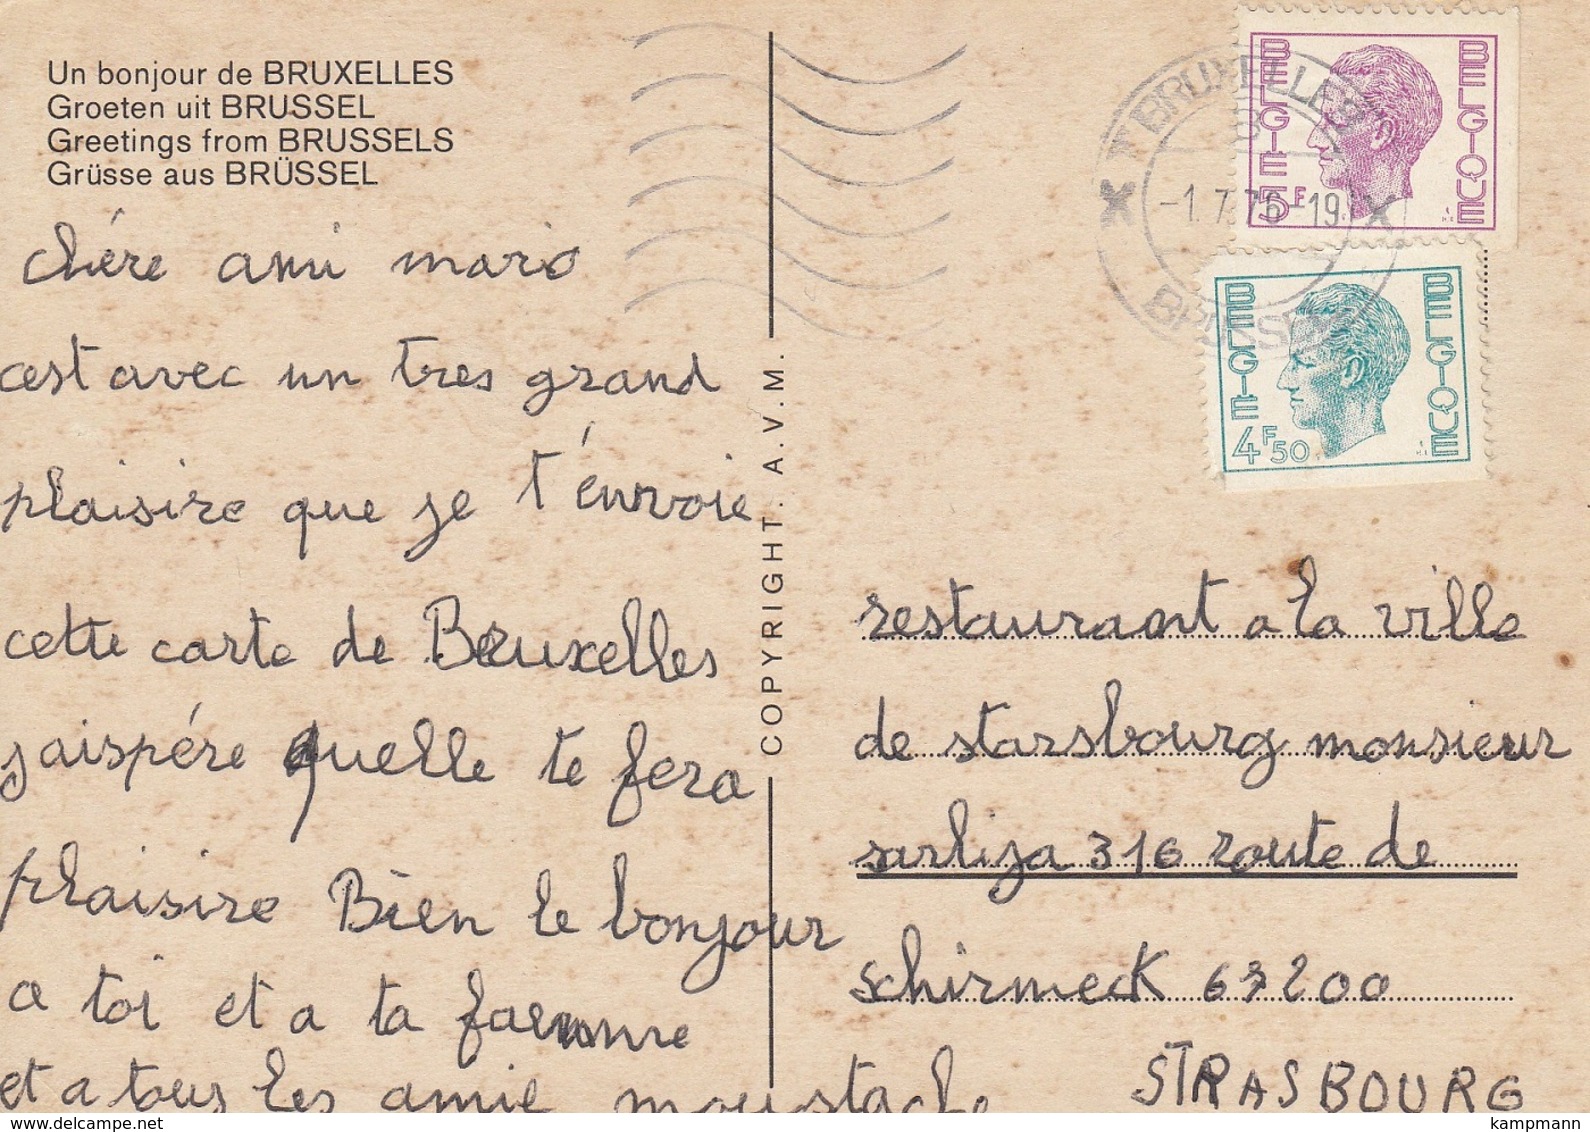 Un bonjour de BRUXELLES
Groeten uit BRUSSEL
Greetings from BRUSSELS
Grüsse aus BRÜSSEL
chére ami mario
cest avec un tres grand
plaisire que je t'énvoie
cette carte de Bruxelles
jaispére quelle te fera
plaisire Bien le bonjour
a toi et a ta famme
et a tous les amie moustache
COPYRIGHT. A.V.M.
BRUXELLES
-1.7.76-19
BRUSSEL
BELGIE BELGIQUE
5F
BELGIE BELGIQUE
4F50
restaurant a la ville
de starsbourg monsieur
sarlija 316 route de
schirmeck 67200
STRASBOURG
www.delcampe.net
kampmann